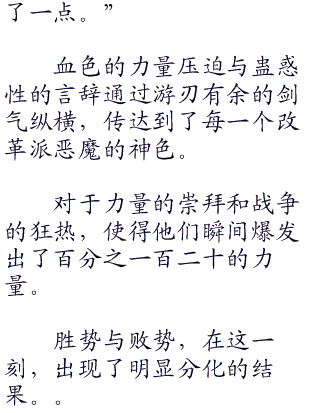 了一点。”
血色的力量压迫与蛊惑
性的言辞通过游刃有余的剑
气纵横，传达到了每一个改
革派恶魔的神色。
对于力量的崇拜和战争
的狂热，使得他们瞬间爆发
出了百分之一百二十的力
量。
胜势与败势，在这一
刻，出现了明显分化的结
果。。